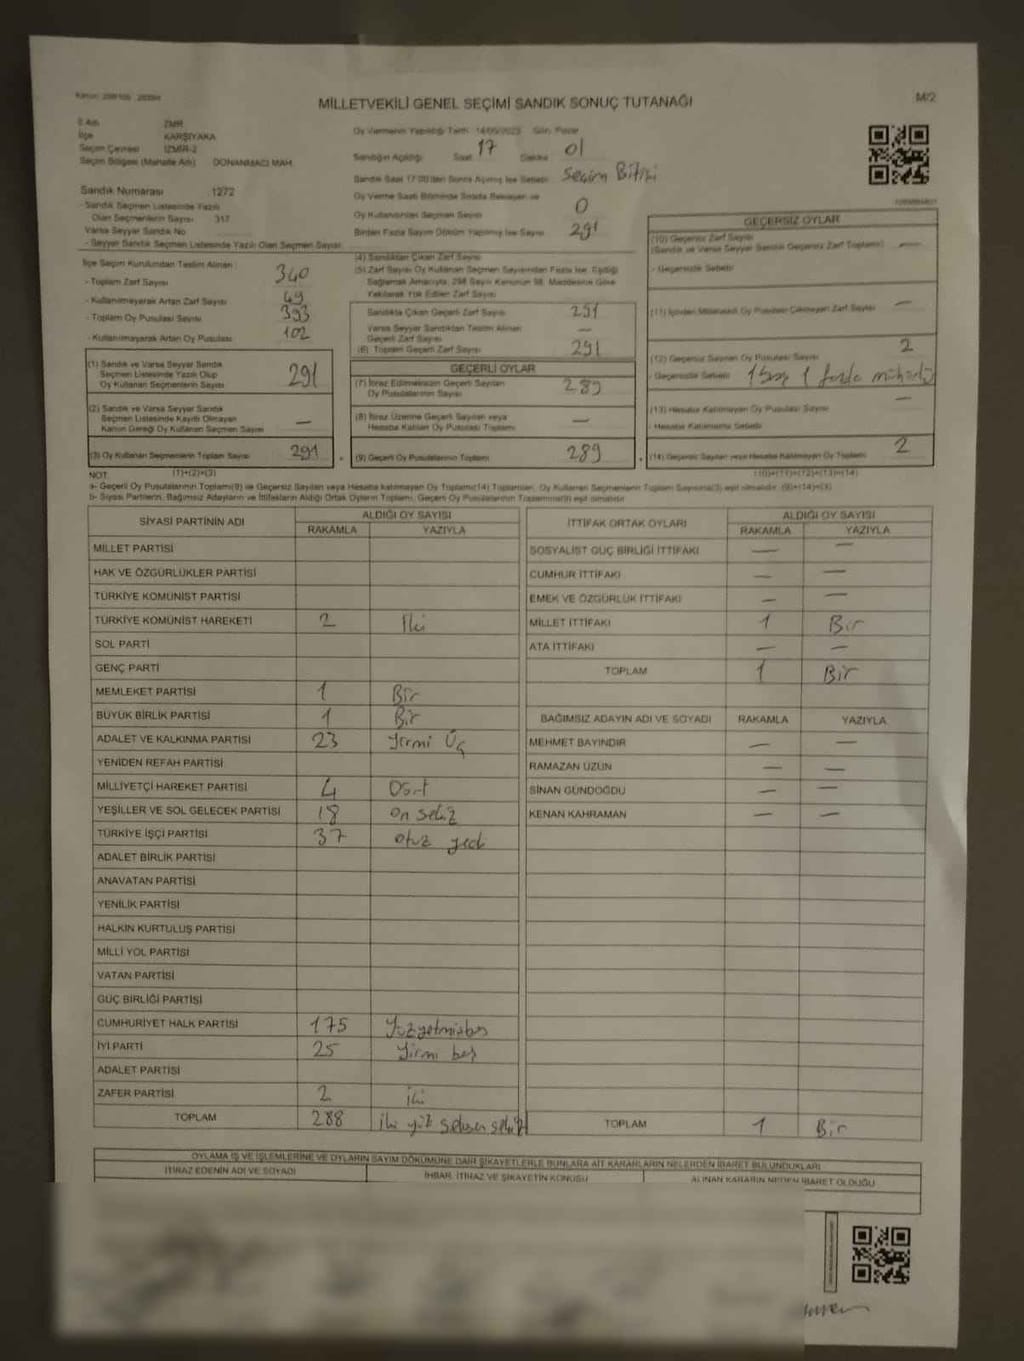 MİLLETVEKİLİ GENEL SEÇİMİ SANDIK SONUÇ TUTANAĞI
M/2
İl Adı İZMİR
İlçe KARŞIYAKA
Seçim Çevresi İZMİR-2
Seçim Bölgesi (Mahalle Adı) DONANMACI MAH.
Oy Vermenin Yapıldığı Tarih 14/05/2023 Gün Pazar
Sandığın Açıldığı Saat 17 Dakika 01
Sandık Saat 17:00'den Sonra Açılmış İse Sebebi Seçim Bitişi
Sandık Numarası 1272
- Sandık Seçmen Listesinde Yazılı
Olan Seçmenlerin Sayısı 317
Varsa Seyyar Sandık No
- Seyyar Sandık Seçmen Listesinde Yazılı Olan Seçmen Sayısı
Oy Verme Saati Bitiminde Sırada Bekleyen ve
Oy Kullandırılan Seçmen Sayısı 0
Birden Fazla Sayım Döküm Yapılmış İse Sayısı 291
İlçe Seçim Kurulundan Teslim Alınan
- Toplam Zarf Sayısı 340
- Kullanılmayarak Artan Zarf Sayısı 49
- Toplam Oy Pusulası Sayısı 393
- Kullanılmayarak Artan Oy Pusulası 102
(1) Sandık ve Varsa Seyyar Sandık
Seçmen Listesinde Yazılı Olup
Oy Kullanan Seçmenlerin Sayısı 291
(2) Sandık ve Varsa Seyyar Sandık
Seçmen Listesinde Kayıtlı Olmayan
Kanun Gereği Oy Kullanan Seçmen Sayısı —
(3) Oy Kullanan Seçmenlerin Toplam Sayısı 291
(1)+(2)=(3)
(4) Sandıktan Çıkan Zarf Sayısı
(5) Zarf Sayısı Oy Kullanan Seçmen Sayısından Fazla İse, Eşitliği
Sağlamak Amacıyla, 298 Sayılı Kanunun 98. Maddesine Göre
Yakılarak Yok Edilen Zarf Sayısı
Sandıkta Çıkan Geçerli Zarf Sayısı 291
Varsa Seyyar Sandıktan Teslim Alınan
Geçerli Zarf Sayısı —
(6) Toplam Geçerli Zarf Sayısı 291
GEÇERLİ OYLAR
(7) İtiraz Edilmeksizin Geçerli Sayılan
Oy Pusulalarının Sayısı 289
(8) İtiraz Üzerine Geçerli Sayılan veya
Hesaba Katılan Oy Pusulası Toplamı —
(9) Geçerli Oy Pusulalarının Toplamı 289
GEÇERSİZ OYLAR
(10) Geçersiz Zarf Sayısı
(Sandık ve Varsa Seyyar Sandık Geçersiz Zarf Toplamı) —
- Geçersizlik Sebebi
(11) İçinden Milletvekili Oy Pusulası Çıkmayan Zarf Sayısı —
(12) Geçersiz Sayılan Oy Pusulası Sayısı 2
- Geçersizlik Sebebi 1 boş 1 fazla mühürlü
(13) Hesaba Katılmayan Oy Pusulası Sayısı —
- Hesaba Katılmama Sebebi
(14) Geçersiz Sayılan veya Hesaba Katılmayan Oy Toplamı 2
(10)+(11)+(12)+(13)=(14)
NOT
a- Geçerli Oy Pusulalarının Toplamı(9) ve Geçersiz Sayılan veya Hesaba katılmayan Oy Toplamı(14) Toplamları, Oy Kullanan Seçmenlerin Toplam Sayısına(3) eşit olmalıdır. (9)+(14)=(3)
b- Siyasi Partilerin, Bağımsız Adayların ve İttifakların Aldığı Ortak Oyların Toplamı, Geçerli Oy Pusulalarının Toplamına(9) eşit olmalıdır
SİYASİ PARTİNİN ADI ALDIĞI OY SAYISI
RAKAMLA YAZIYLA
MİLLET PARTİSİ
HAK VE ÖZGÜRLÜKLER PARTİSİ
TÜRKİYE KOMÜNİST PARTİSİ
TÜRKİYE KOMÜNİST HAREKETİ 2 İki
SOL PARTİ
GENÇ PARTİ
MEMLEKET PARTİSİ 1 Bir
BÜYÜK BİRLİK PARTİSİ 1 Bir
ADALET VE KALKINMA PARTİSİ 23 Yirmi Üç
YENİDEN REFAH PARTİSİ
MİLLİYETÇİ HAREKET PARTİSİ 4 Dört
YEŞİLLER VE SOL GELECEK PARTİSİ 18 On sekiz
TÜRKİYE İŞÇİ PARTİSİ 37 otuz yedi
ADALET BİRLİK PARTİSİ
ANAVATAN PARTİSİ
YENİLİK PARTİSİ
HALKIN KURTULUŞ PARTİSİ
MİLLİ YOL PARTİSİ
VATAN PARTİSİ
GÜÇ BİRLİĞİ PARTİSİ
CUMHURİYET HALK PARTİSİ 175 Yüzyetmişbeş
İYİ PARTİ 25 Yirmi beş
ADALET PARTİSİ
ZAFER PARTİSİ 2 iki
TOPLAM 288 iki yüz seksen sekiz
İTTİFAK ORTAK OYLARI ALDIĞI OY SAYISI
RAKAMLA YAZIYLA
SOSYALİST GÜÇ BİRLİĞİ İTTİFAKI — —
CUMHUR İTTİFAKI — —
EMEK VE ÖZGÜRLÜK İTTİFAKI — —
MİLLET İTTİFAKI 1 Bir
ATA İTTİFAKI — —
TOPLAM 1 Bir
BAĞIMSIZ ADAYIN ADI VE SOYADI RAKAMLA YAZIYLA
MEHMET BAYINDIR — —
RAMAZAN UZUN — —
SİNAN GÜNDOĞDU — —
KENAN KAHRAMAN — —
TOPLAM 1 Bir
OYLAMA İŞ VE İŞLEMLERİNE VE OYLARIN SAYIM DÖKÜMÜNE DAİR ŞİKAYETLERLE BUNLARA AİT KARARLARIN NELERDEN İBARET BULUNDUKLARI
İTİRAZ EDENİN ADI VE SOYADI
İHBAR, İTİRAZ VE ŞİKAYETİN KONUSU
ALINAN KARARIN NEDEN İBARET OLDUĞU